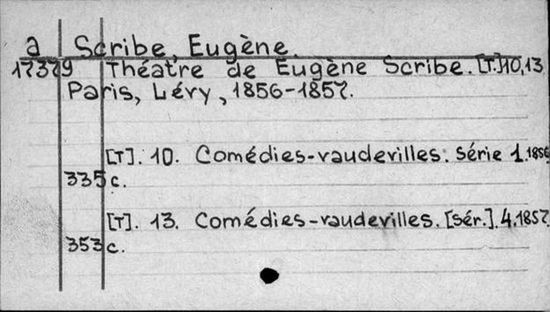 a Scribe, Eugène.
17379 Théatre de Eugène Scribe. [T.] 10,13
Paris, Lévy, 1856-1857.
[T]. 10. Comédies-vaudevilles. Série 1. 1856
335 c.
[T]. 13. Comédies-vaudevilles. [Sér.]. 4. 1857.
353 c.